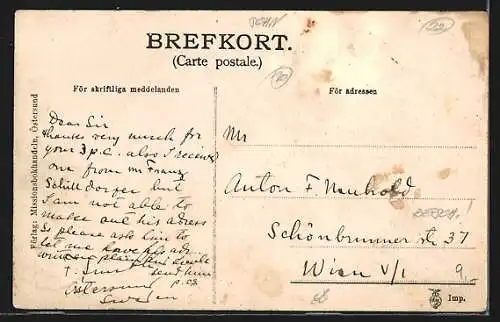 BREFKORT.
(Carte postale.)
För skriftliga meddelanden
För adressen
Förlag: Missionsbokhandeln, Östersund
Dear Sir
thanks very much for
your 3 p.c. also I receive
one from Mr Franz
Schilldorfer but
I am not able to
makee out his adress
So please ask him to
let me have his adr
written plain and I will
send him
p.cs
Östersund
Sweden
Mr
Anton F. Neuhold
Schönbrunner str 37
Wien V/1
9,-
Imp.